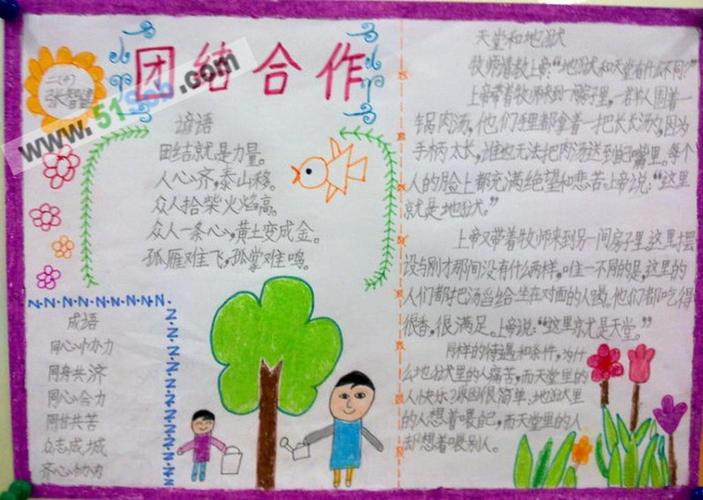 团结合作
二(4)
张智
www.51Sbb.com
谚语
团结就是力量。
人心齐,泰山移。
众人拾柴火焰高。
众人一条心,黄土变成金。
孤雁难飞,孤掌难鸣。
成语
同心协力
同舟共济
同心合力
同甘共苦
众志成城
齐心协力
天堂和地狱
牧师请教上帝:“地狱和天堂有什么不同?”
上帝带着牧师来到一间房子里,一群人围着一
锅肉汤,他们手里都拿着一把长长汤,因为
手柄太长,谁也无法把肉汤送到自己嘴里。每个
人的脸上都充满绝望和悲苦。上帝说:“这里
就是地狱。”
上帝又带着牧师来到另一间房子里,这里摆
设与刚才那间没有什么两样,唯一不同的是,这里的
人们都把汤舀给坐在对面的人喝。他们都吃得
很香,很满足。上帝说:“这里就是天堂。”
同样的待遇和条件,为什
么地狱里的人痛苦,而天堂里的
人快乐?原因很简单:地狱里
的人想着喂自己,而天堂里的人
却想着喂别人。